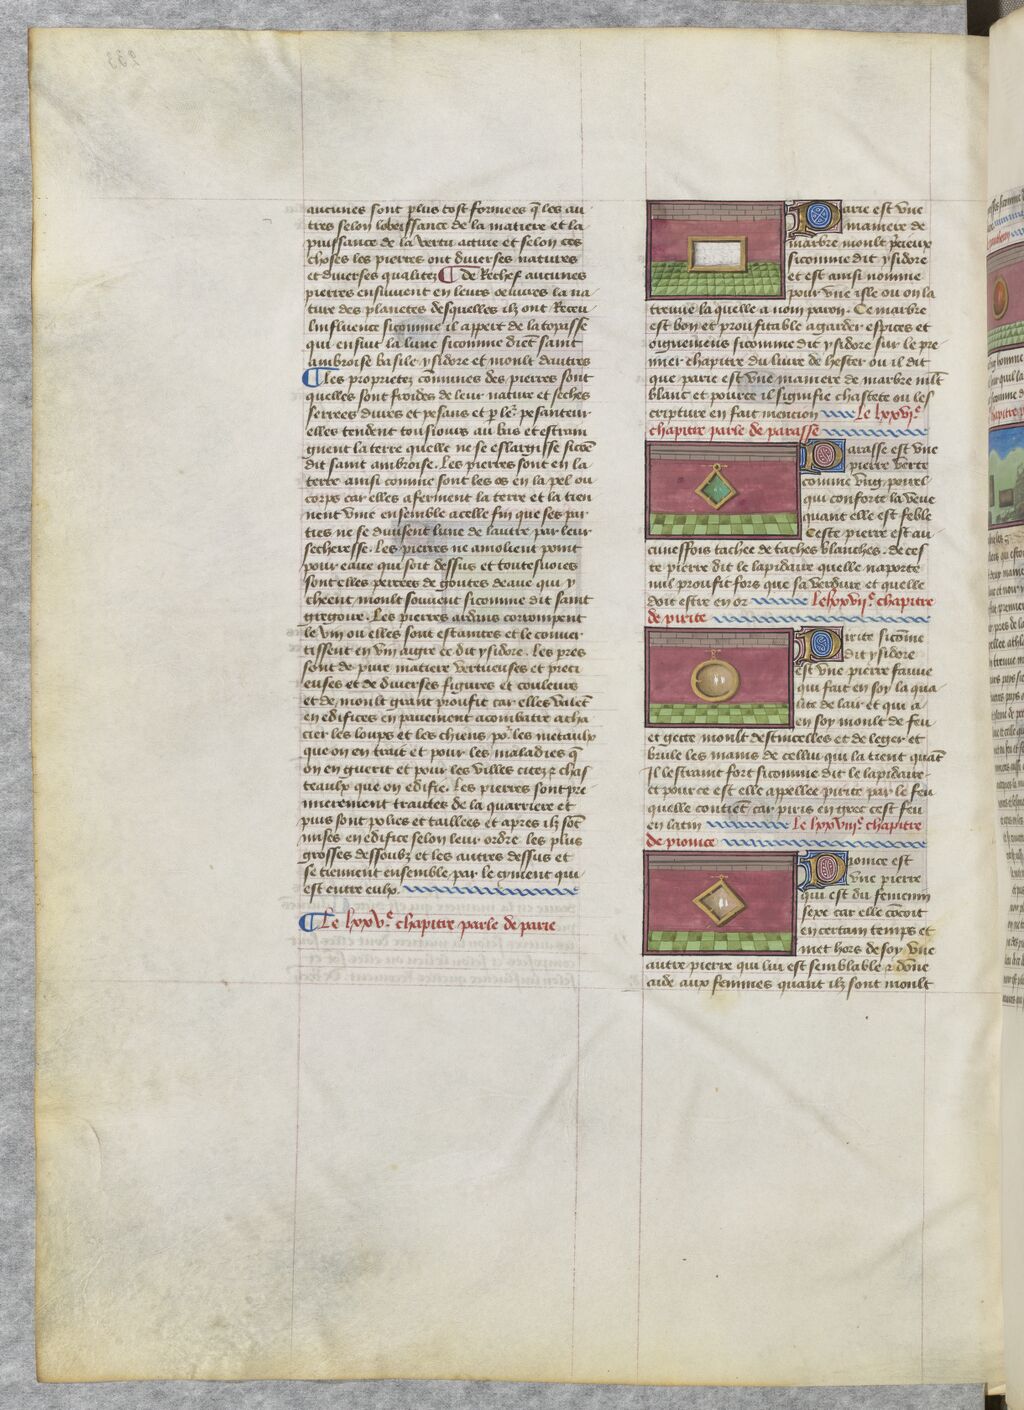 aucunes sont plus tost formees q̄ les au
tres selon lobeissance de la matiere et la
puissance de la vertu actiue et selon ces
choses les pierres ont diuerses natures
et diuerses qualitez ¶ de Rechef aucunes
pierres ensuiuent en leurs oeuures la na
ture des planetes desquelles ilz ont Receu
linfluence sicomme il appert de la topasse
qui ensuit la lune sicomme dient saint
ambroise basile ysidore et moult dautres
¶ Les proprietez cōmunes des pierres sont
quelles sont froides de leur nature et seches
serrees dures et pesans et p leᵉ pesanteur
elles tendent tousiours au bas et estrain
gnent la terre quelle ne se eslargisse sicōe
dit saint ambroise. Les pierres sont en la
terre ainsi comme sont les os en la pel ou
corps car elles afferment la terre et la tien
nent vnie ensemble a celle fin que ses par
ties ne se diuisent lune de lautre par leur
secheresse. Les pierres ne amolient point
pour eaue qui soit dessus et toutesuoies
sont elles percees de goutes deaue qui y
cheent moult souuent sicomme dit saint
gregoire. Les pierres ardans corrompent
le vin ou elles sont estaintes et le conuer
tissent en vin aigre ce dit ysidore. Les pres
sont de pure matiere vertueuses et preci
euses et de diuerses figures et couleurs
et de moult grant proufit car elles valēt
en edifices en pauement a combatre a cha
cier les loups et les chiens poᵘ les metaulx
que on en trait et pour les maladies q̄
on en guerit et pour les villes citez ⁊ chas
teaulx que on edifie. Les pierres sont pre
mierement traites de la quarriere et
puis sont polies et taillees et apres ilz sōt
mises en edifice selon leur ordre. les plus
grosses dessoubz et les autres dessus et
se tiennent ensemble par le cyment qui
est entre eulx.
¶ Le lxxvᵉ. chapitre parle de parie
Parie est vne
maniere de
marbre moult p̄cieux
sicomme dit ysidore
et est ainsi nomme
pour vne isle ou on la
treuue la quelle a nom paron. Ce marbre
est bon et proufitable a garder espices et
oignemens sicomme dit ysidore sur le pre
mier chapitre du liure de hester ou il dit
que parie est vne maniere de marbre mlt
blanc et pource il signifie chastete ou les
cripture en fait mencion Le lxxviᵉ.
chapitre parle de parasse
Parasse est vne
pierre verte
comme vng porrel
qui conforte la veue
quant elle est feble
Ceste pierre est au
cuneffois tachee de taches blanches. de ces
te pierre dit le lapidaire quelle naporte
nul proufit fors que sa verdure et quelle
doit estre en or Le lxxviiᵉ. chapitre
de pirite
Pirite sicōme
dit ysidore
est vne pierre fauue
qui fait en soy la qua
lite de lair et qui a
en soy moult de feu
et gecte moult destincelles et de leger et
brule les mains de cellui qui la tient quāt
Il lestraint fort sicomme dit le lapidaire.
et pour ce est elle appellee pirite par le feu
quelle contiēt car piris en grec cest feu
en latin Le lxxviiiᵉ. chapitre
de pionice
Pionice est
vne pierre
qui est du femenin
sexe car elle cōcoit
en certain temps et
met hors de soy vne
autre pierre qui lui est semblable ⁊ dōne
aide aux femmes quant ilz sont moult